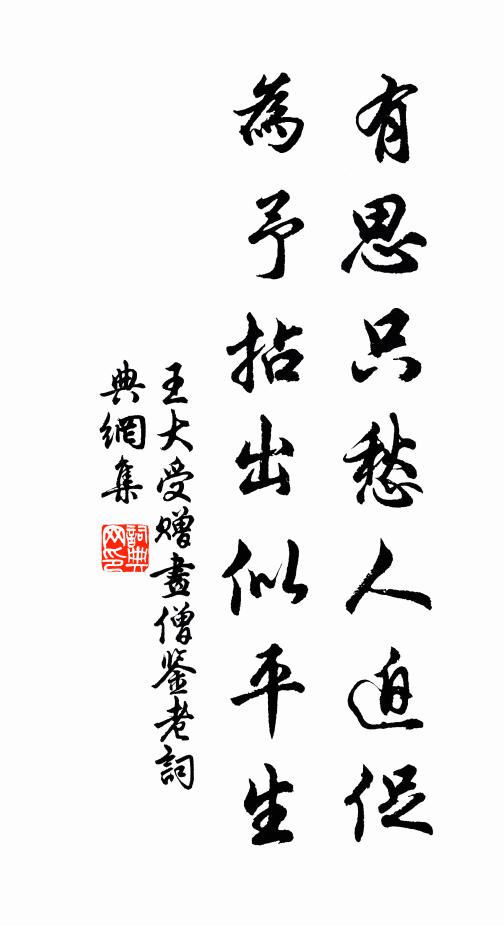 有思只愁人迫促
為予拈出似平生
王大受贈畫僧鉴老詞
典網集
詞典
网印